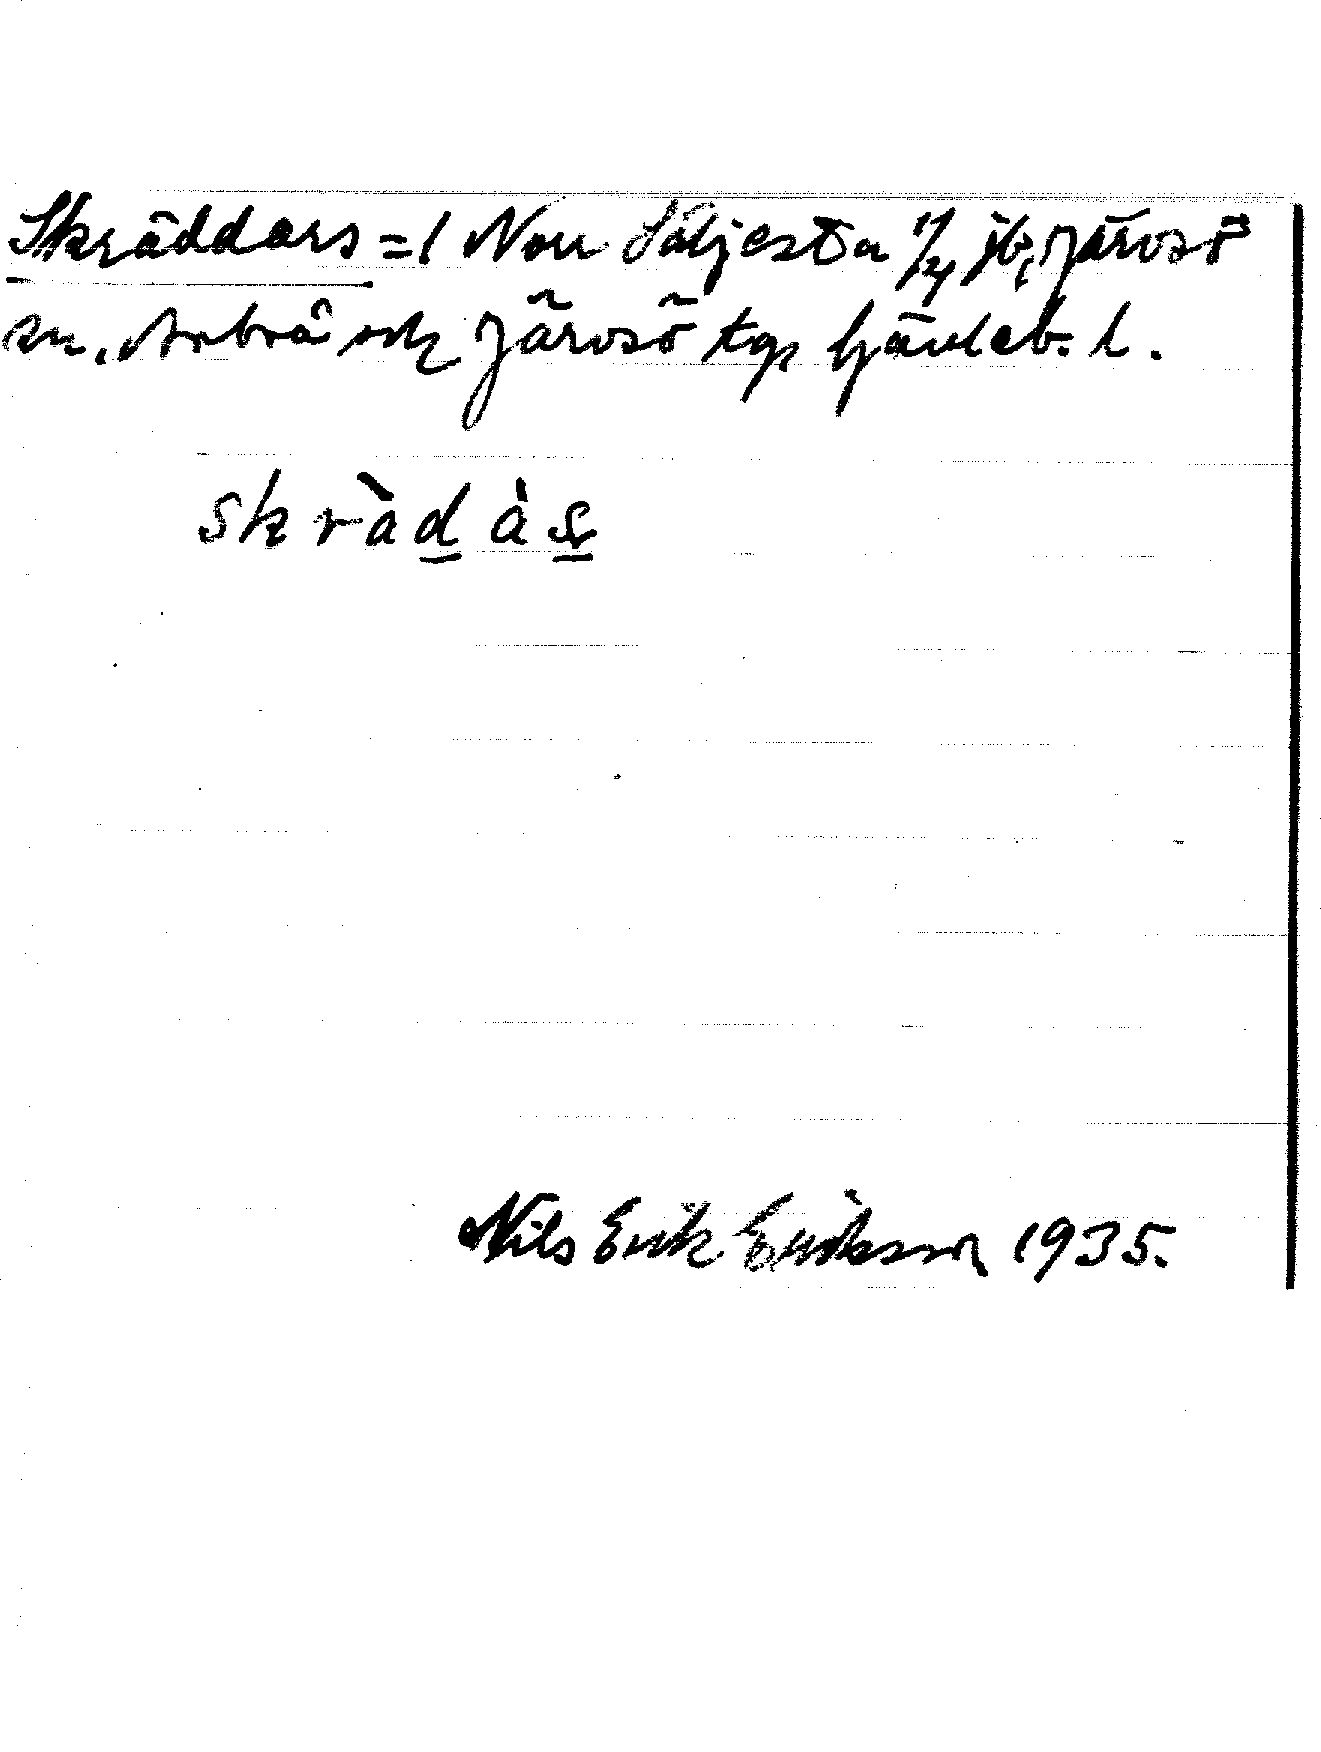 Skräddars = 1 Norr Säljesta 1/4 jb, Järvsö
sn. Arbrå och Järvsö tg, Gävleb. l.
skràdàs
Nils Erik Eriksson 1935.